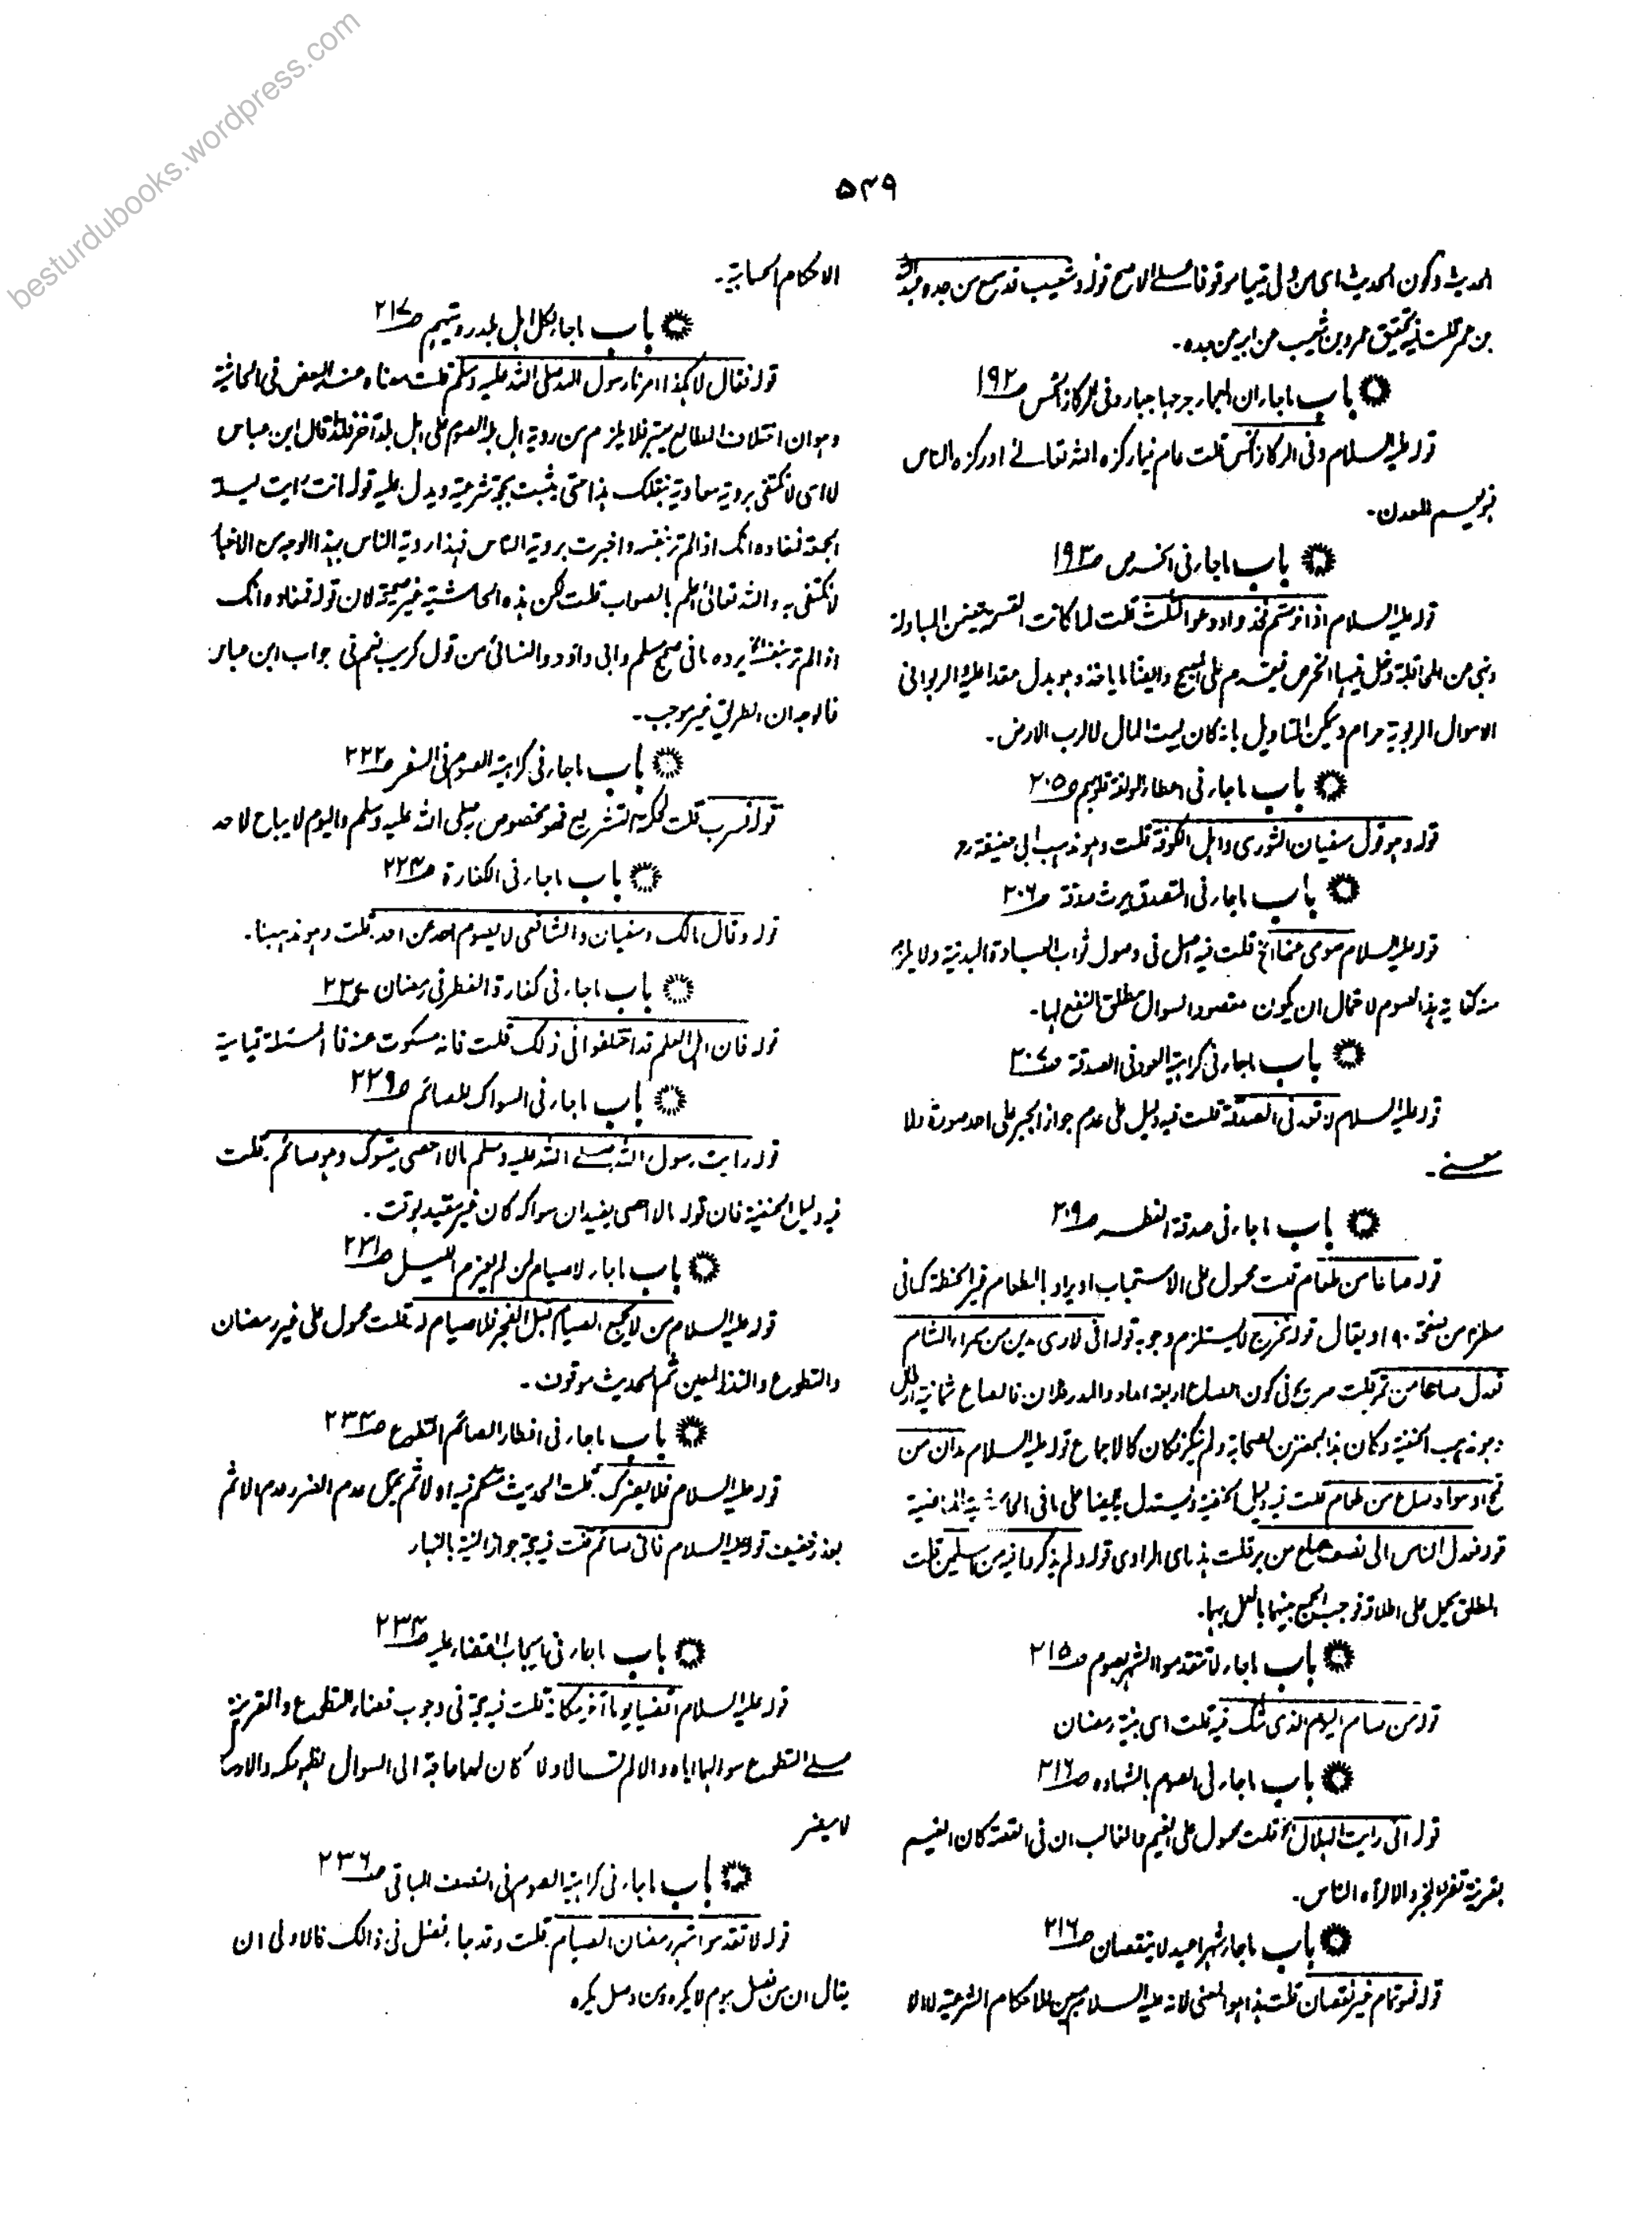 besturdubooks.wordpress.com
۵۴۹
الحدیث وکون الحدیث ای من ولی یتیما موقوفا علی الاصح قولہ وشعیب قد سمع من جدہ عبد اللہ
بن عمر قلت فیہ تحقیق عمرو بن شعیب عن ابیہ عن جدہ۔
باب ماجاء ان العجماء جرحہا جبار وفی الرکاز الخمس ص۱۹۲
قولہ علیہ السلام وفی الرکاز الخمس قلت عام فیما رکزہ اللہ تعالےٰ او رکزہ الناس
فہو یعم المعدن۔
باب ماجاء فی الخرص ص۱۹۳
قولہ علیہ السلام اذا خرصتم فخذوا ودعوا الثلث قلت لما کانت القسمۃ یتضمن المبادلۃ
ونہی عن المحاقلۃ دخل فیہا الخرص فیقدم علی المبیح وایضا ما یاخذہ وہو بدل مقدار علیہ الربوا فی
الاموال الربویۃ حرام ویمکن التاویل بانہ کان لبیت المال لا لرب الارض۔
باب ماجاء فی اعطاء المؤلفۃ قلوبہم ص۲۰۵
قولہ وہو قول سفیان الثوری واہل الکوفۃ قلت وہو مذہب ابی حنیفۃ رح
باب ماجاء فی المتصدق یرث صدقتہ ص۲۰۶
قولہ علیہ السلام صومی عنہا الخ قلت فیہ اصل فی وصول ثواب العبادۃ البدنیۃ ولا یلزم
منہ کفایۃ ہذا الصوم لاحتمال ان یکون مقصود السوال مطلق النفع لہا۔
باب ماجاء فی کراہیۃ العود فی الصدقۃ ص۲۰۷
قولہ علیہ السلام لا تعد فی الصدقۃ قلت فیہ دلیل علی عدم جواز الجبر علی احد صورۃ ولا
معنے۔
باب ماجاء فی صدقۃ الفطر ص۲۰۹
قولہ صاعا من طعام قلت محمول علی الاستحباب او یراد بالطعام غیر الحنطۃ کما فی
من صفحۃ ۹۰ او یقال قولہ نخرج لا یستلزم وجوبہ قولہ انی لاری مدین من سمراء الشام
تعدل صاعا من تمر قلت صریح فی کون الصاع اربعۃ امداد والمد رطلان فالصاع ثمانیۃ ارطال
وہو مذہب الحنفیۃ وکان ہذا بمحضر من الصحابۃ ولم ینکر فکان کالاجماع قولہ علیہ السلام مدان من
قمح او سواہ صاع من طعام قلت فیہ دلیل الحنفیۃ ویستدل بہ ایضا علی ما فی الحاشیۃ الماضیۃ
قولہ فعدل الناس الی نصف صاع من بر قلت ہذا رای الراوی قولہ ولم یذکروا فیہ من المسلمین قلت
المطلق یحمل علی اطلاقہ فوجب الجمع بینہما بالعمل بہما۔
باب ماجاء لا تتقدموا الشہر بصوم ص۲۱۵
قولہ من صام الیوم الذی شک فیہ قلت ای بنیۃ رمضان
باب ماجاء فی الصوم بالشہادۃ ص۲۱۶
قولہ انی رایت الہلال الخ قلت محمول علی الغیم فالغالب ان فی القصۃ کان الغیم
بقرینۃ تفرد المخبر والا لرآہ الناس۔
باب ماجاء شہرا عید لا ینقصان ص۲۱۶
قولہ فہو تمام غیر نقصان قلت ہذا ہو المعنی لانہ علیہ السلام مبین للاحکام الشرعیۃ لا
الاحکام الحسابیۃ۔
باب ماجاء لکل اہل بلد رویتہم ص۲۱۷
قولہ فقال لا ہکذا امرنا رسول اللہ صلی اللہ علیہ وسلم قلت معناہ عند البعض فی الحاشیۃ
وہو ان اختلاف المطالع معتبر فلا یلزم من رویۃ اہل بلد الصوم علی اہل بلد آخر فلذا قال ابن عباس
لا ای لا نکتفی برویۃ معاویۃ بنقلک ہذا حتی یثبت بحجۃ شرعیۃ ویدل علیہ قولہ انت رایت لیلۃ
الجمعۃ فمفادہ انک اذا لم تر بنفسہ واخبرت برویۃ الناس فہذا رویۃ الناس بہذا الوجہ من الاخبار
لا نکتفی بہ واللہ تعالیٰ اعلم بالصواب قلت لکن ہذہ الحاشیۃ غیر صحیحۃ لان قولہ فمفادہ انک
اذا لم تر بنفسک الخ یردہ ما فی صحیح مسلم وابی داؤد والنسائی من قول کریب نعم فی جواب ابن عباس
فالوجہ ان الطریق غیر موجب۔
باب ماجاء فی کراہیۃ الصوم فی السفر ص۲۲۲
قولہ فشرب قلت لحکمۃ التشریع فہو مخصوص بہ صلی اللہ علیہ وسلم والیوم لا یباح لاحد
باب ماجاء فی الکفارۃ ص۲۲۴
قولہ وقال مالک وسفیان والشافعی لا یصوم احد عن احد۔ قلت وہو مذہبنا۔
باب ماجاء فی کفارۃ الفطر فی رمضان ص۲۲۶
قولہ فان اہل العلم قد اختلفوا فی ذلک قلت فانہ مسکوت عنہ فالمسئلۃ قیاسیۃ
باب ماجاء فی السواک للصائم ص۲۲۹
قولہ رایت رسول اللہ صلے اللہ علیہ وسلم مالا احصی یتسوک وہو صائم۔ قلت
فیہ دلیل الحنفیۃ فان قولہ مالا احصی یفید ان سواکہ کان غیر مقید بوقت۔
باب ماجاء لا صیام لمن لم یعزم من اللیل ص۲۳۱
قولہ علیہ السلام من لم یجمع الصیام قبل الفجر فلا صیام لہ قلت محمول علی غیر رمضان
والتطوع والنذر المعین ثم الحدیث موقوف۔
باب ماجاء فی افطار الصائم المتطوع ص۲۳۳
قولہ علیہ السلام فلا یضرک۔ قلت الحدیث متکلم فیہ اولا ثم یحمل عدم الضرر عدم الاثم
بعذر خفیف قولہ علیہ السلام فانی صائم قلت فیہ حجۃ جواز النیۃ بالنہار
باب ماجاء فی ایجاب القضاء علیہ ص۲۳۴
قولہ علیہ السلام اقضیا یوما آخر مکانہ قلت فیہ حجۃ فی وجوب قضاء التطوع والقرینۃ
علے التطوع سوالہما ایاہ والا لم تسالا ولا کان لہما حاجۃ الی السوال
لا یضر
باب ماجاء فی کراہیۃ الصوم فی النصف الباقی ص۲۳۶
قولہ لا تقدموا شہر رمضان الصیام۔ قلت وقد جاء فضل فی ذالک فالاولی ان
یقال ان من فصل بیوم لا یکرہ ومن وصل یکرہ